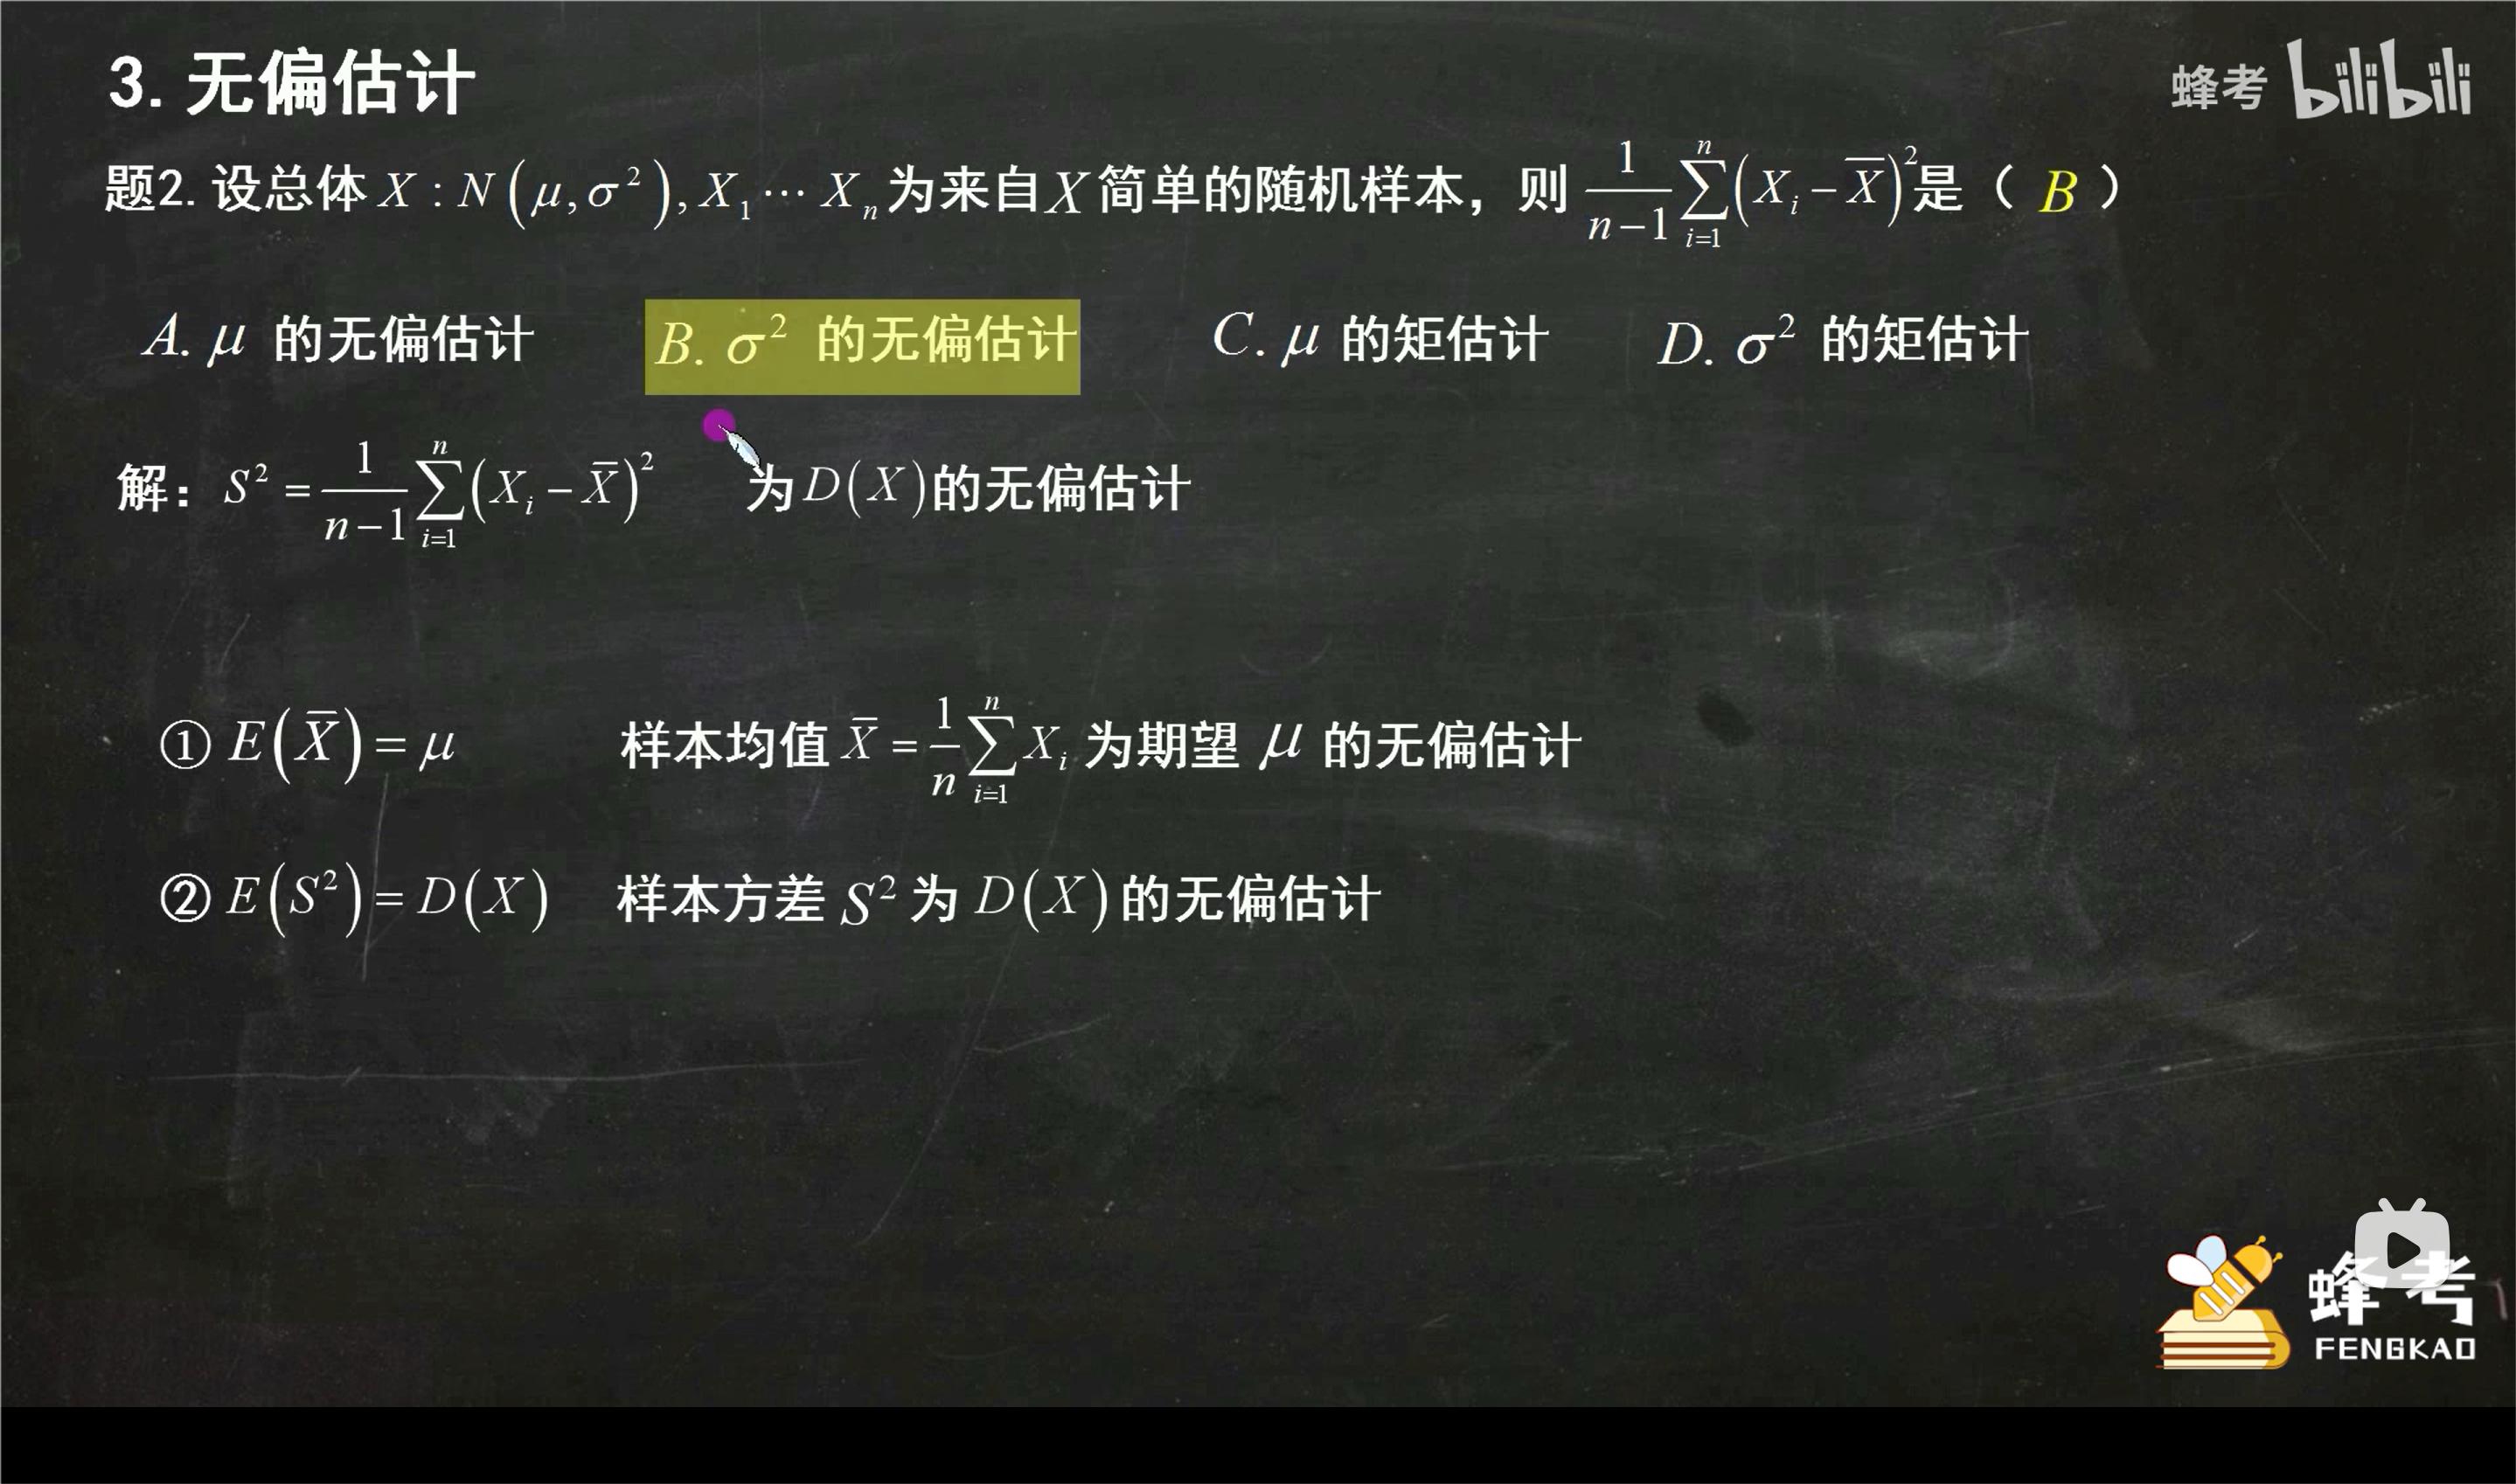 3. 无偏估计
蜂考 bilibili
题2. 设总体 X : N(μ,σ²), X₁⋯Xₙ 为来自X简单的随机样本，则 \frac{1}{n-1}\sum_{i=1}^{n}(X_i-\overline{X})^2 是（ B ）
A. μ 的无偏估计 B. σ² 的无偏估计 C. μ 的矩估计 D. σ² 的矩估计
解：S² = \frac{1}{n-1}\sum_{i=1}^{n}(X_i-\overline{X})^2 为D(X)的无偏估计
① E(\overline{X}) = μ 样本均值 \overline{X} = \frac{1}{n}\sum_{i=1}^{n}X_i 为期望 μ 的无偏估计
② E(S²) = D(X) 样本方差 S² 为 D(X) 的无偏估计
蜂考
FENGKAO